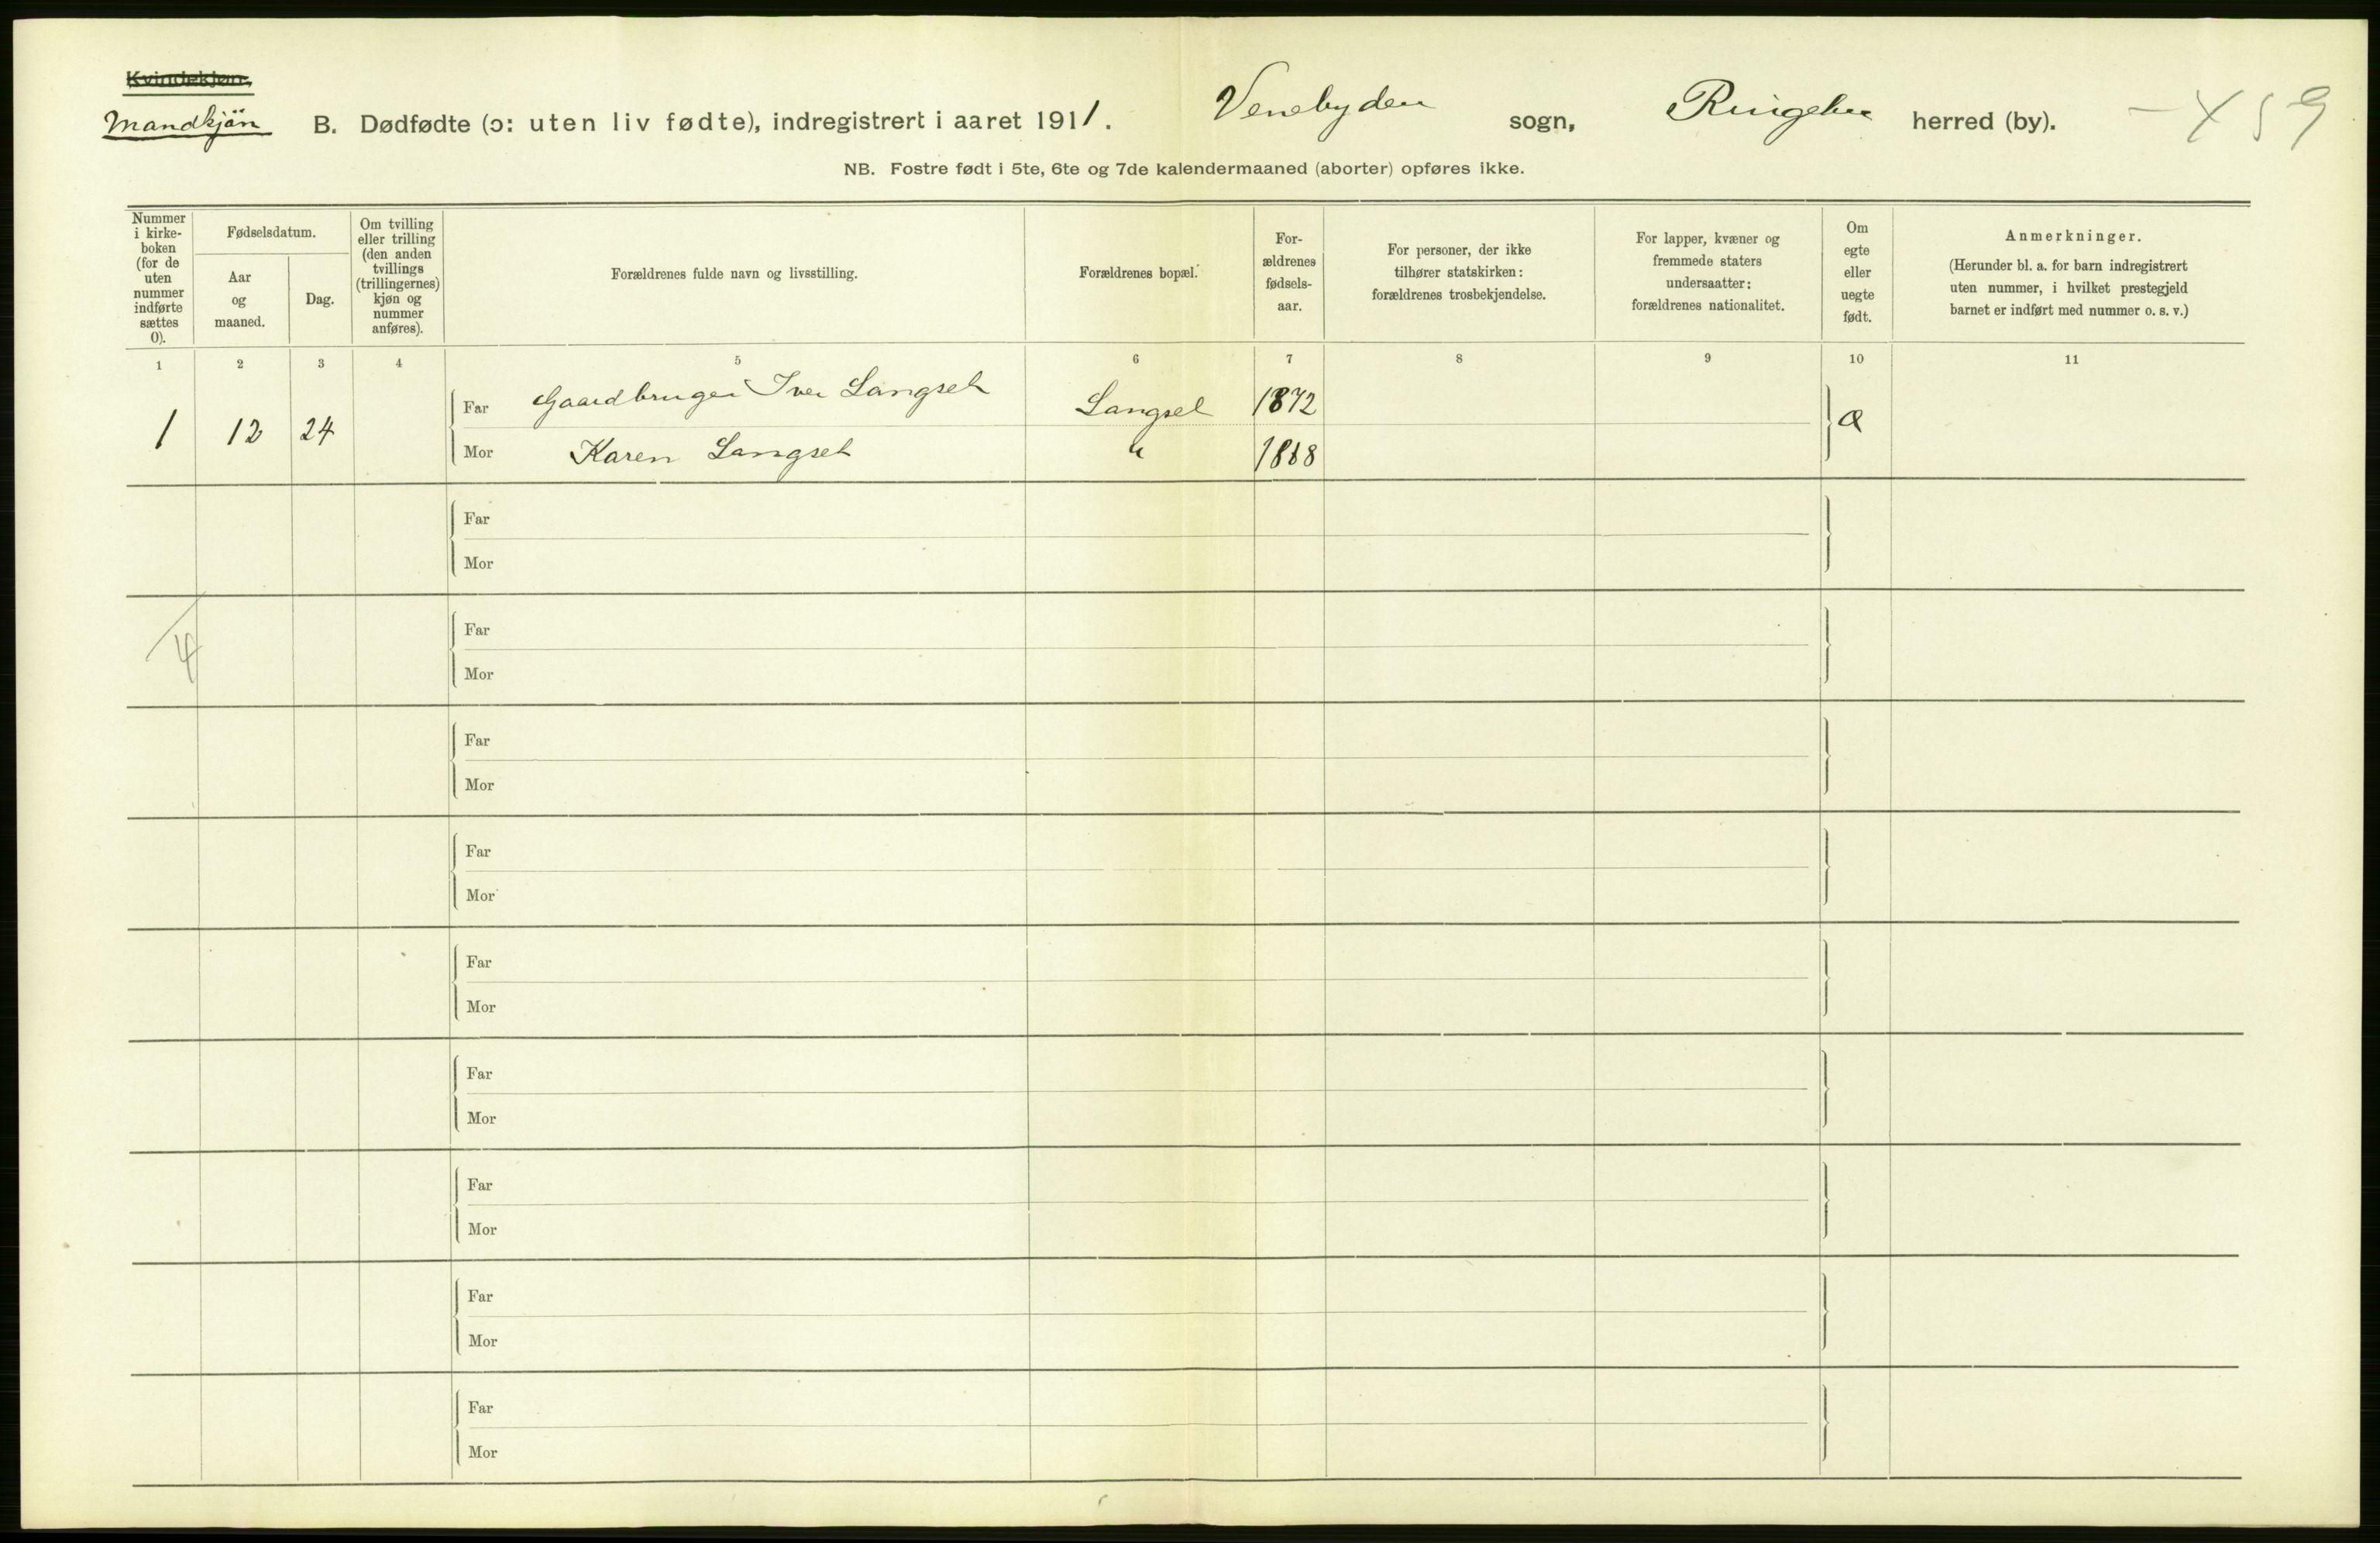 Kvindekjøn.
Mandkjön B. Dødfødte (ɔ: uten liv fødte), indregistrert i aaret 1911. Venebyden sogn, Ringebu herred (by). – 459
NB. Fostre født i 5te, 6te og 7de kalendermaaned (aborter) opføres ikke.
Nummer
i kirke-
boken
(for de
uten
nummer
indførte
sættes
0).
Fødselsdatum.
Aar
og
maaned.
Dag.
Om tvilling
eller trilling
(den anden
tvillings
(trillingernes)
kjøn og
nummer
anføres).
Forældrenes fulde navn og livsstilling.
Forældrenes bopæl.
For-
ældrenes
fødsels-
aar.
For personer, der ikke
tilhører statskirken:
forældrenes trosbekjendelse.
For lapper, kvæner og
fremmede staters
undersaatter:
forældrenes nationalitet.
Om
egte
eller
uegte
født.
Anmerkninger.
(Herunder bl. a. for barn indregistrert
uten nummer, i hvilket prestegjeld
barnet er indført med nummer o. s. v.)
1 2 3 4 5 6 7 8 9 10 11
Far Gaardbruger Iver Langset Langset 1872
1 12 24
Mor Karen Langset " 1868
Far
Mor
Far
4
Mor
Far
Mor
Far
Mor
Far
Mor
Far
Mor
Far
Mor
Far
Mor
Far
Mor